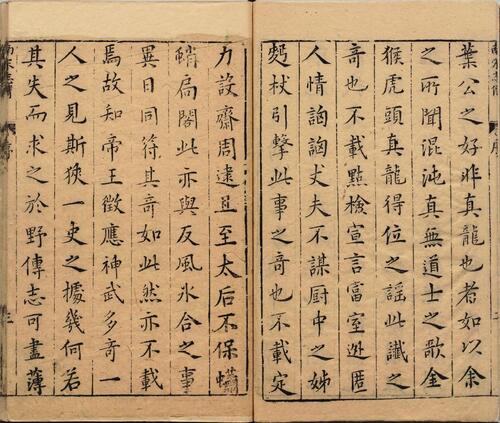 葉公之好非真龍也者如以余
之所聞混沌真無道士之歌金
猴虎頭真龍得位之謡此讖之
竒也不載點檢宣言富室迯匿
人情訩訩丈夫不謀厨中之姊
麪杖引擊此事之竒也不載定
力設齋周逮且至太后不保蠨
蛸扃閣此亦與反風氷合之事
異日同符其竒如此然亦不載
焉故知帝王徵應神武多竒一
人之見斯狹一史之據幾何若
其失而求之於野傳志可盡薄